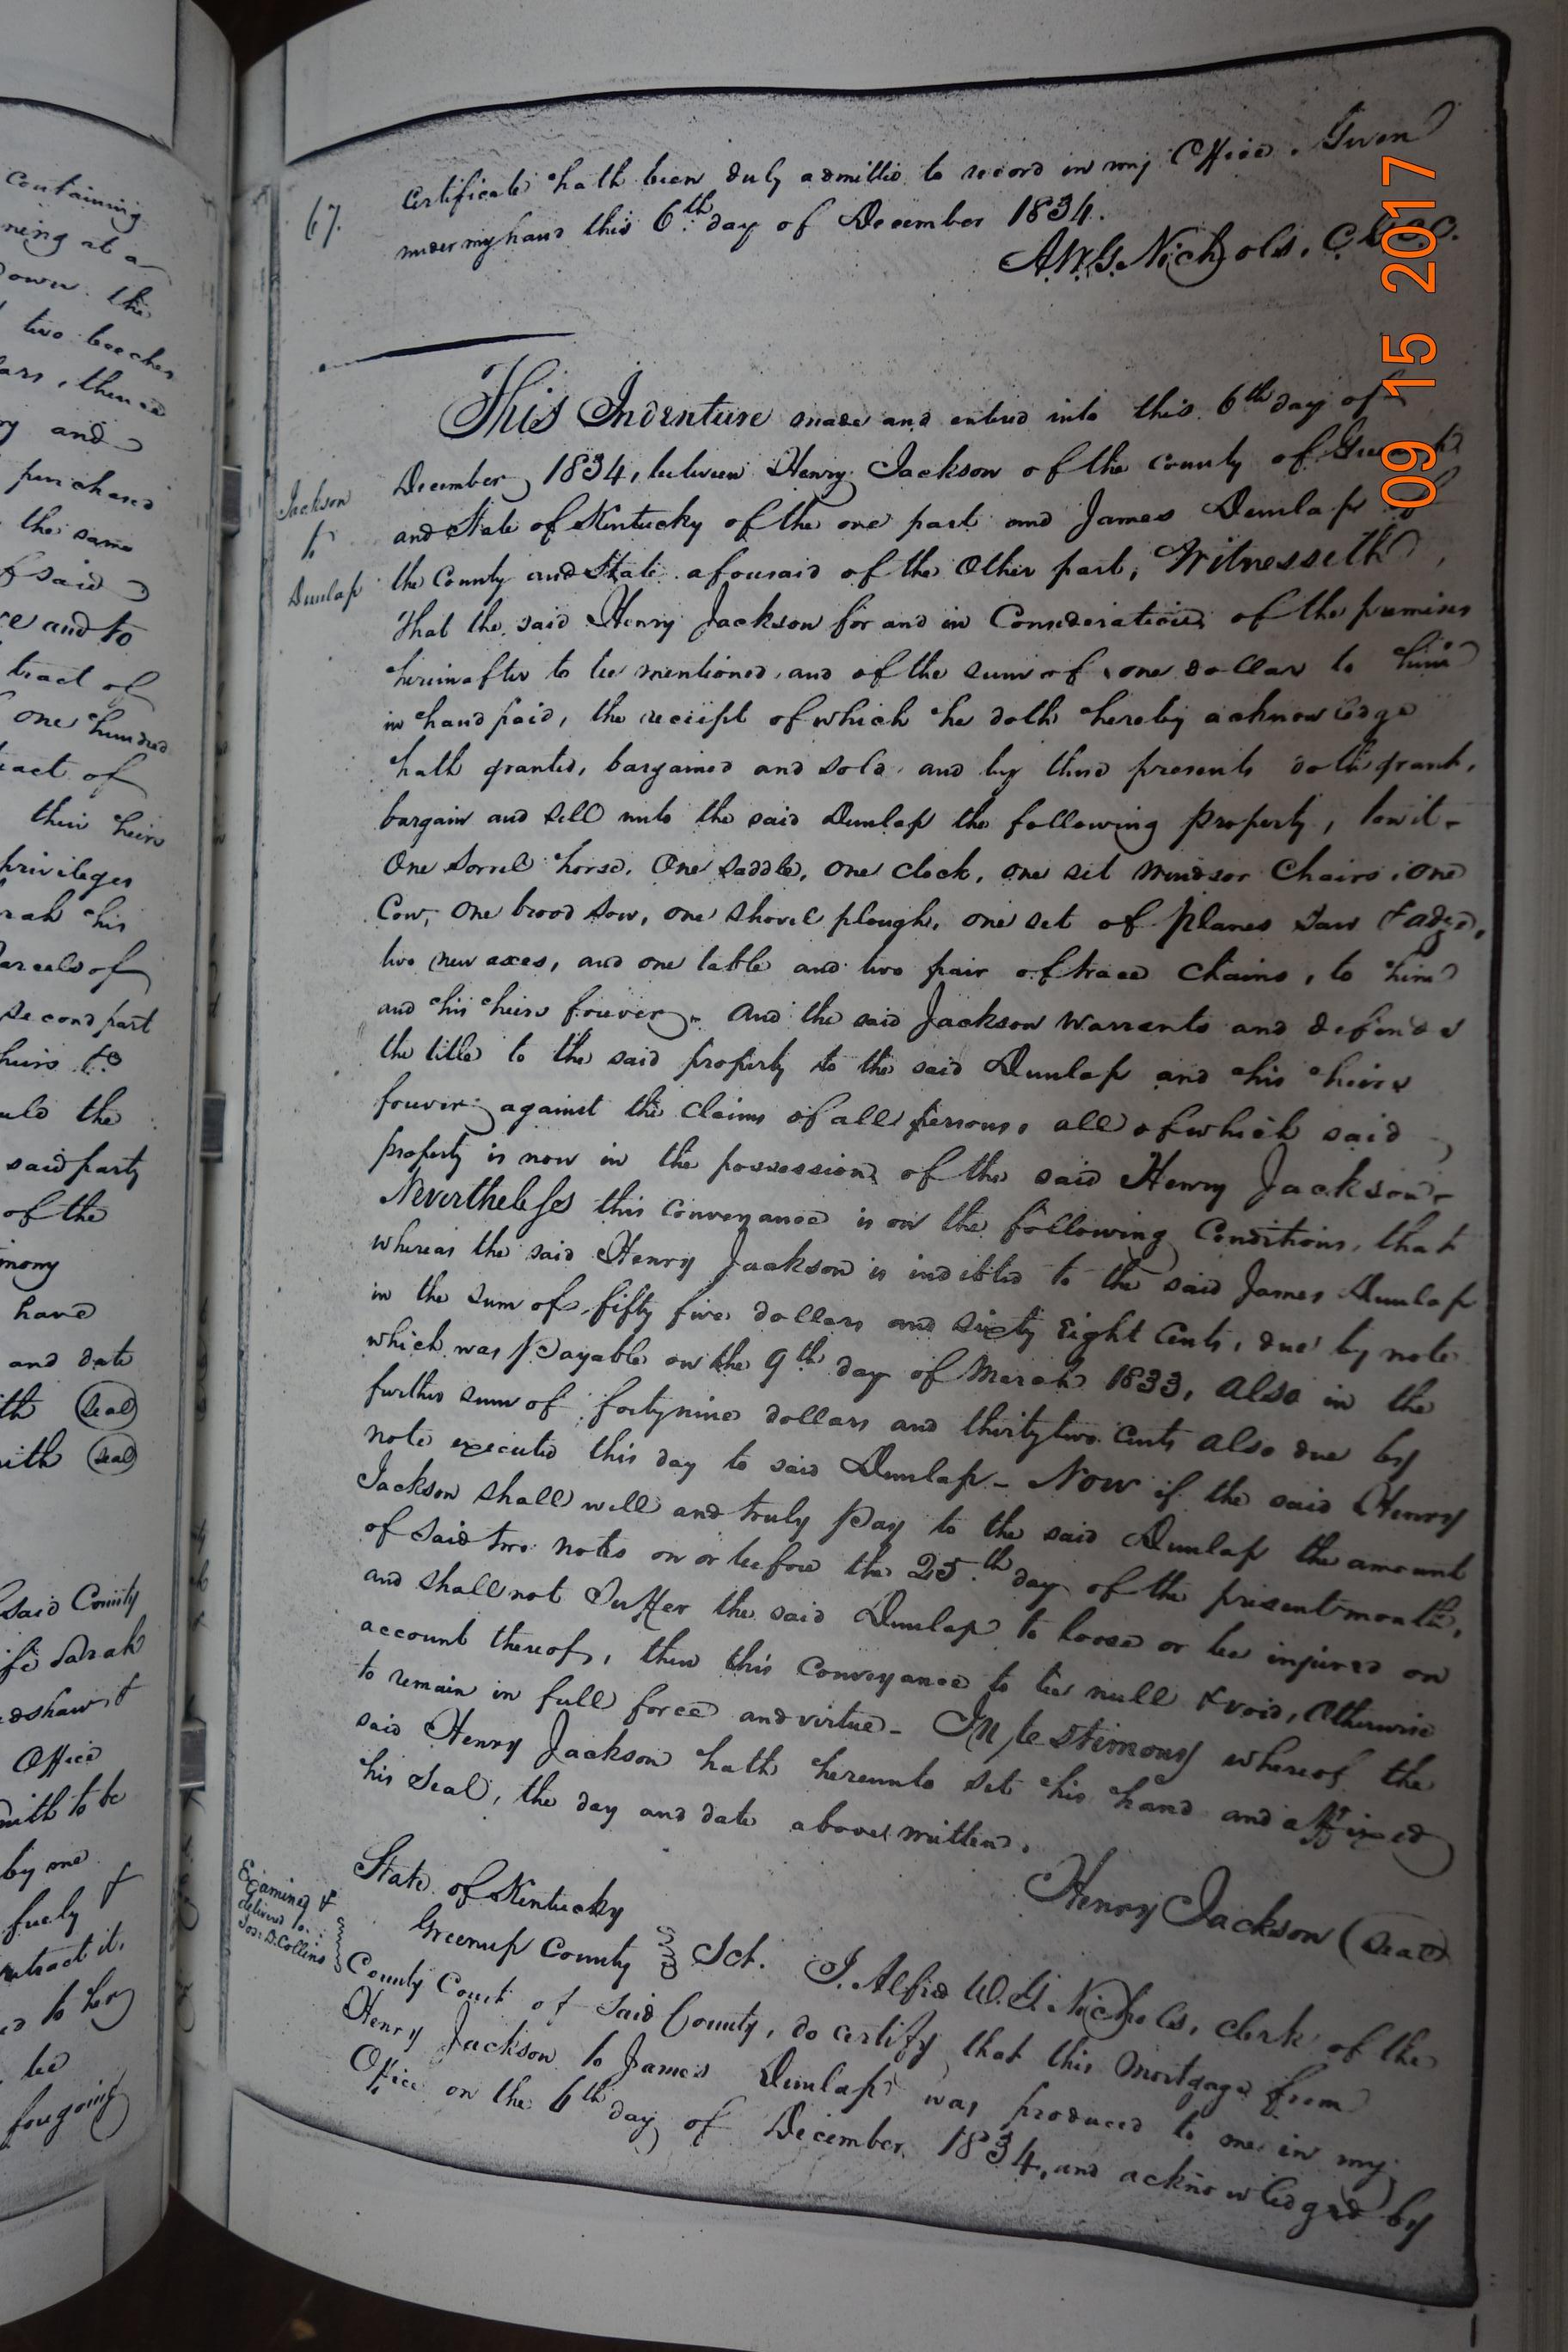 containing
ning at a
down the
two beeches
ars, thence
ry and
purchased
the same
of said
ce and to
tract of
one hundred
tract of
their heirs
privileges
rah his
parcels of
second part
heirs to
uld the
said party
of the
mony
have
and date
ith (Seal)
ith (Seal)
said County
fe Sarah
dshaw &
Office
mith to be
by me
fuely &
ntract it,
ed to her
be
foregoing
67.
Certificate hath been duly admitted to record in my Office. Given
under my hand this 6th day of December 1834.
A.W.G. Nichols, C.G.C.C.
This Indenture made and entred into this 6th day of
December 1834, between Henry Jackson of the County of Greenup
Jackson
to
Dunlap
and State of Kentucky of the one part and James Dunlap of
the County and State aforesaid of the Other part, Witnesseth,
That the said Henry Jackson for and in Consideration of the premises
hereinafter to be mentioned, and of the sum of one dollar to him
in hand paid, the receipt of which he doth hereby acknowledge
hath granted, bargained and sold, and by these presents doth grant,
bargain and sell unto the said Dunlap the following property, towit-
One sorrel horse, One saddle, one clock, one set Windsor Chairs, one
Cow, one brood sow, one shovel plough, one set of planes saw & adze,
two new axes, and one table and two pair of trace chains, to him
and his heirs forever. And the said Jackson Warrants and defends
the title to the said property to the said Dunlap and his heirs
forever against the claims of all persons, all of which said
property is now in the possession of the said Henry Jackson-
Nevertheless this Conveyance is on the following Conditions, that
whereas the said Henry Jackson is indebted to the said James Dunlap
in the sum of fifty five dollars and sixty Eight Cents, due by note
which was Payable on the 9th day of March 1833, also in the
further sum of fortynine dollars and thirtytwo Cents also due by
note executed this day to said Dunlap- Now if the said Henry
Jackson shall well and truly Pay to the said Dunlap the amount
of said two notes on or before the 25th day of the present month,
and shall not Suffer the said Dunlap to loose or be injured on
account thereof, then this Conveyance to be null & void, Otherwise
to remain in full force and virtue- In testimony whereof the
said Henry Jackson hath hereunto set his hand and affixed
his Seal, the day and date above written.
Henry Jackson (Seal)
State of Kentucky
Greenup County Sct. I. Alfred W. G. Nichols, clerk of the
Examined &
delivered to
Jos: D. Collins
County Court of said County, do certify that this Mortgage from
Henry Jackson to James Dunlap was produced to me in my
Office on the 6th day of December 1834, and acknowledged by
09 15 2017